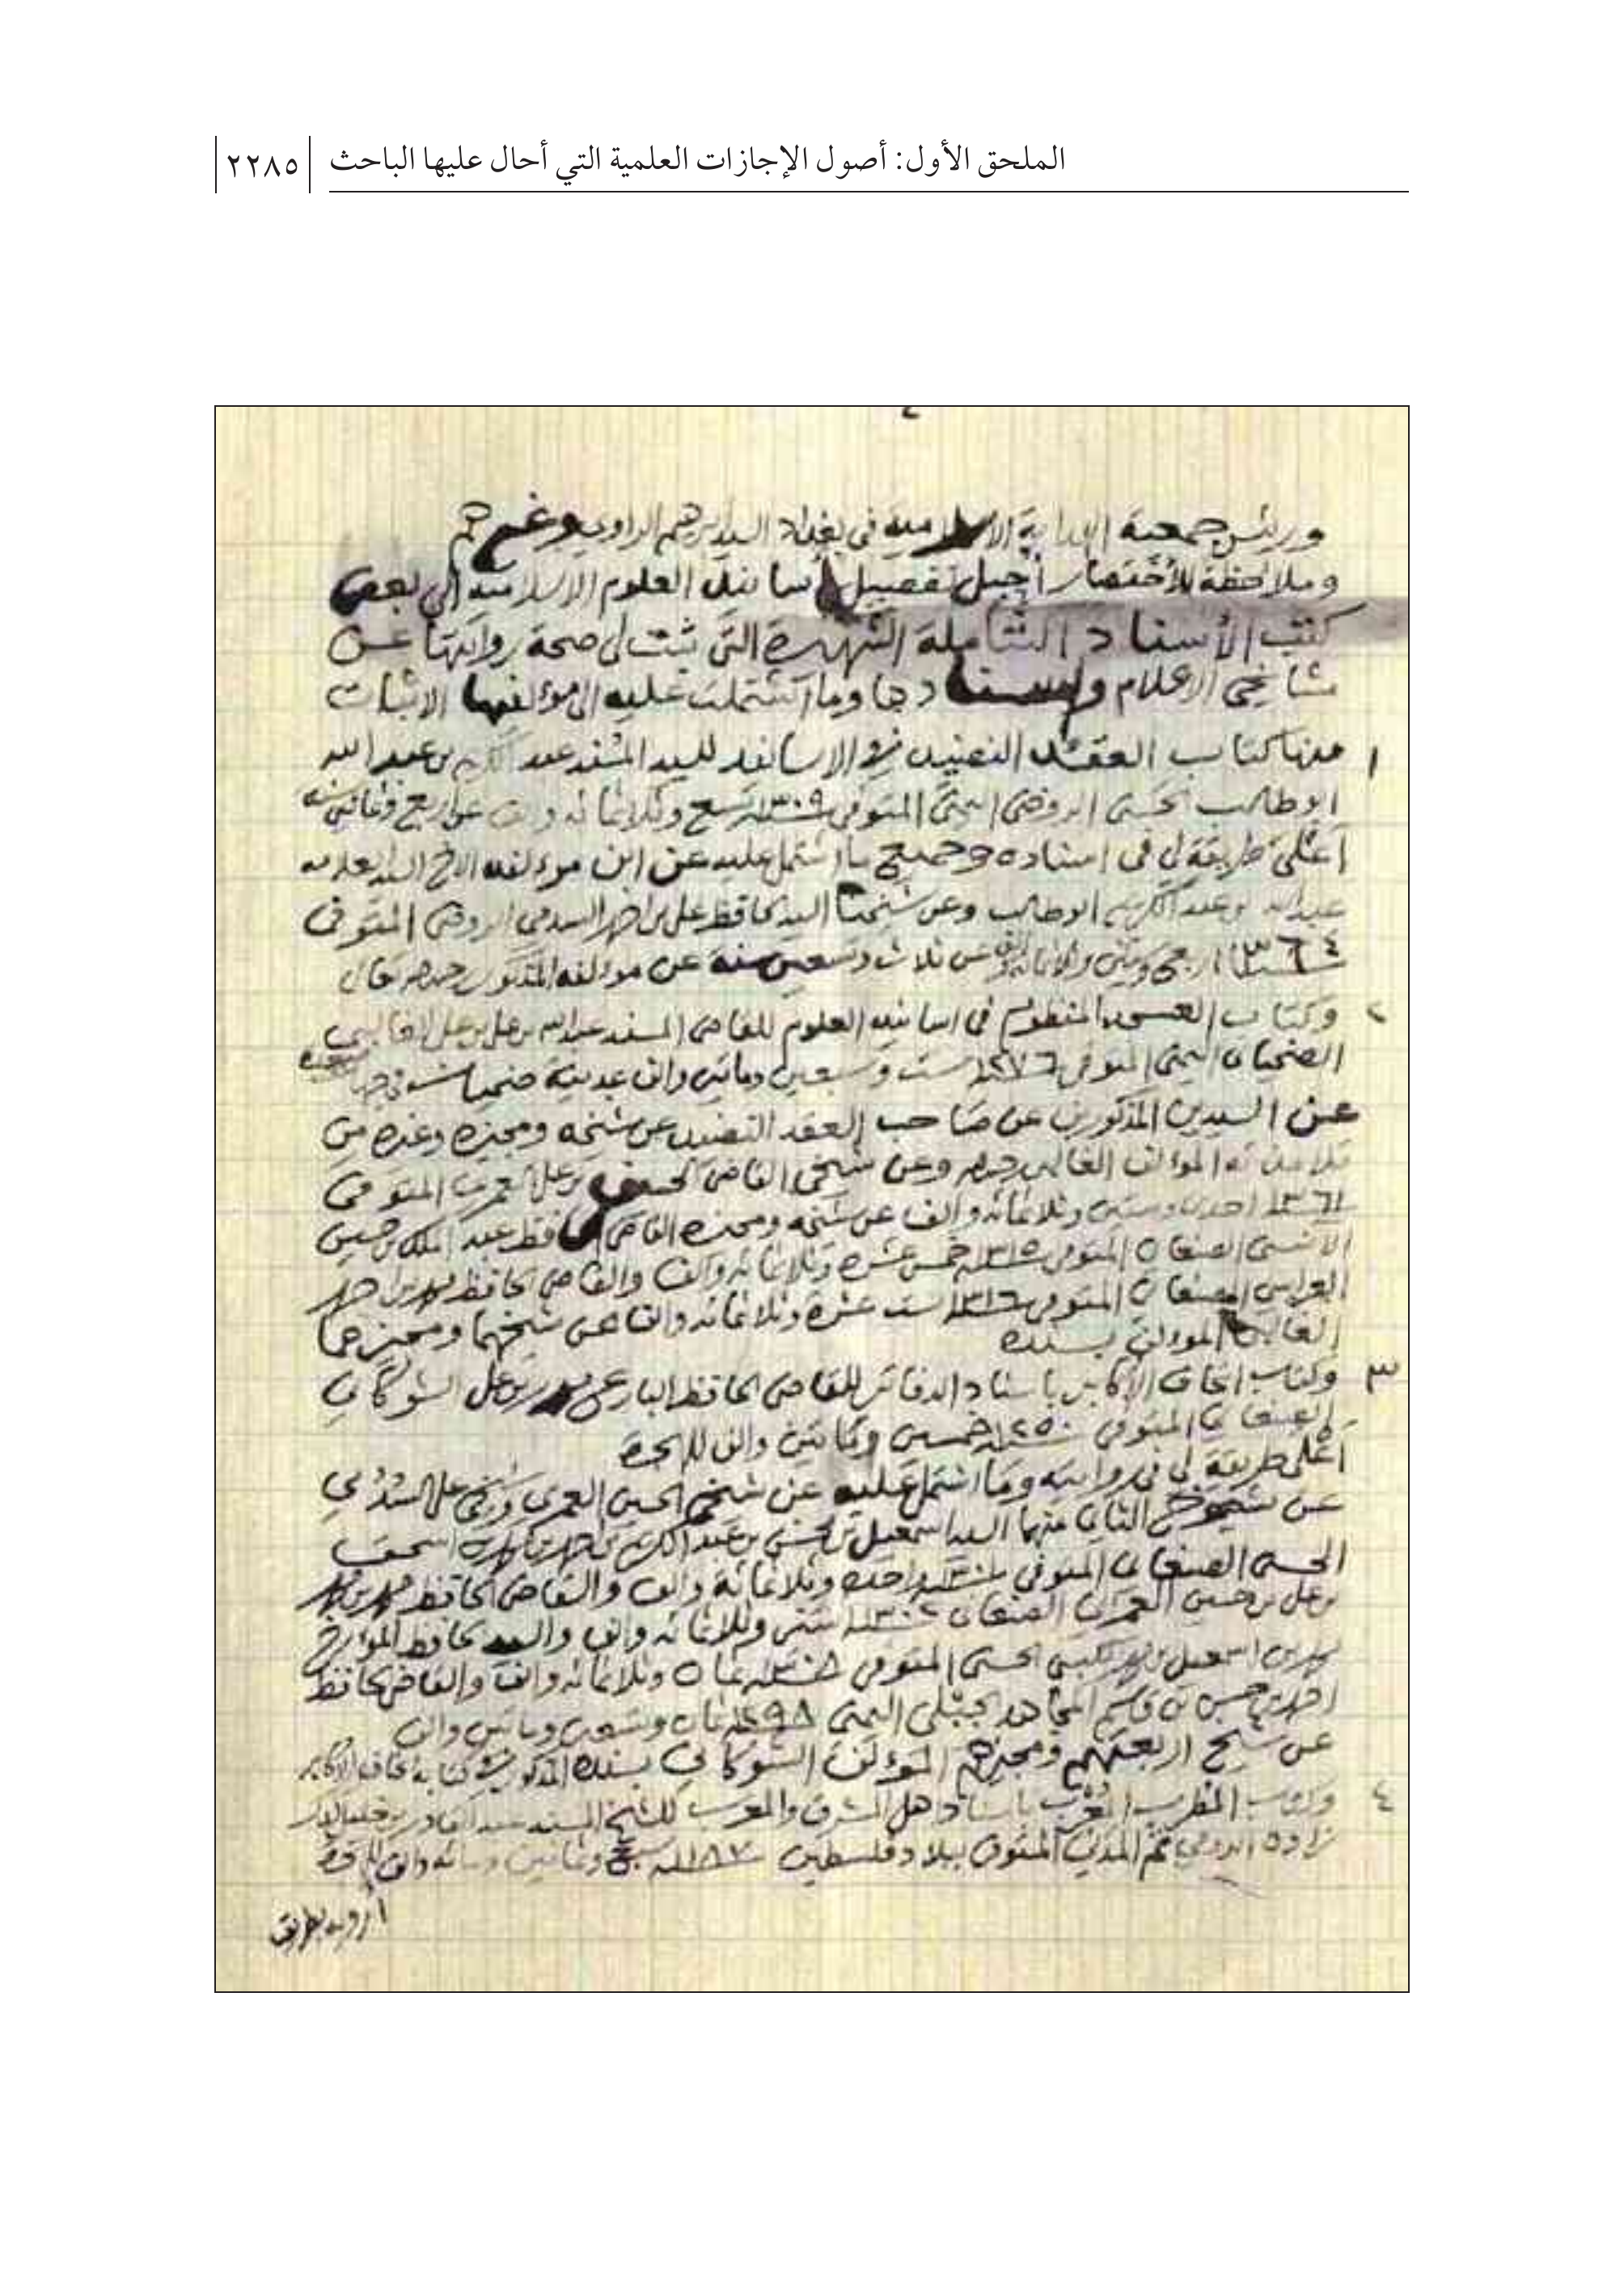 الملحق الأول: أصول الإجازات العلمية التي أحال عليها الباحث ٢٢٨٥
٤
ورئيس جمعية الهداية الاسلامية في بغداد السيد ابرهيم الراوي وغيرهم
وملاحظة للأختصار أحيل تفصيل أسانيد العلوم الاسلامية إلى بعض
كتب الأسناد الشاملة الشهيرة التي ثبت لي صحة روايتها عن
مشايخي الاعلام واسنادها وما اشتملت عليه الى مؤلفيها الاثبات
١ منها كتاب العقد النضيد في الاسانيد للسيد المسند عبد الكريم بن عبد الله
ابو طالب الحسني الروضي اليمني المتوفى ١٣٠٩ تسع وثلاثمائه والف عن اربع وثمانين سنه
أعلى طريقة لي في اسناده وجميع ما اشتمل عليه عن ابن مؤلفه الاخ السيد العلامه
عبدالله بن عبد الكريم ابو طالب وعن شيخنا السيد الحافظ علي بن احمد السدمي الروضي المتوفى
١٣٦٤ اربع وستين وثلاثمائه والف عن ثلاث وتسعين سنة عن مؤلفه المذكور رحمه الله تعالى
٢ وكتاب العسجد المنظوم في اسانيد العلوم للقاضي المسند عبدالله بن علي بن علي الغالبي
الضحياني اليمني المتوفى ١٢٧٦ ست وسبعين ومائتين والف بمدينة ضحيان
عن السيدين المذكورين عن صاحب العقد النضيد عن شيخه ومجيزه وغيره من
تلامذته المؤلف الغالبي رحمه الله وعن شيخي القاضي الحسين بن علي العمري المتوفى
١٣٦١ احدى وستين وثلاثمائه والف عن شيخه ومجيزه القاضي الحافظ عبد الملك بن حسين
الآنسي الصنعاني المتوفى ١٣١٥ خمس عشرة وثلاثمائه والف والقاضي الحافظ محمد بن احمد
العراسي الصنعاني المتوفى ١٣١٦ ست عشرة وثلاثمائه والف عن شيخهما ومجيزهما
الغالبي المؤلف بسنده
٣ وكتاب اتحاف الأكابر باسناد الدفاتر للقاضي الحافظ البارع محمد بن علي الشوكاني
الصنعاني المتوفى ١٢٥٠ خمسين ومائتين والف للهجرة
أعلى طريقة لي في روايته وما اشتمل عليه عن شيخي الحسين العمري وشيخي علي السدمي
عن شيوخ الثاني منهما السيد اسمعيل بن محسن بن عبد الكريم بن احمد بن محمد بن اسحق
الحسني الصنعاني المتوفى ١٣٠١ واحده وثلاثمائة والف والقاضي الحافظ محمد بن محمد
بن علي بن حسين العمراني الصنعاني ١٣٠٢ اثنتين وثلاثمائه والف والسيد الحافظ المؤرخ
محمد بن اسمعيل بن محمد الكبسي الحسني المتوفى ١٣٠٨ ثمان وثلاثمائه والف والقاضي الحافظ
احمد بن حسن بن قاسم المجاهد الجبلي اليمني ١٢٩٨ ثمان وتسعين ومائتين والف
عن شيخ اربعتهم ومجيزهم المؤلف الشوكاني بسنده المذكور في كتابه اتحاف الأكابر
٤ وكتاب المطرب المعرب باسناد اهل المشرق والمغرب للشيخ المسند عبد القادر بن خليل كدك
زاده الرومي ثم المدني المتوفى ببلاد فلسطين ١١٨٧ سبع وثمانين ومائه والف للهجرة
أرويه بطريق